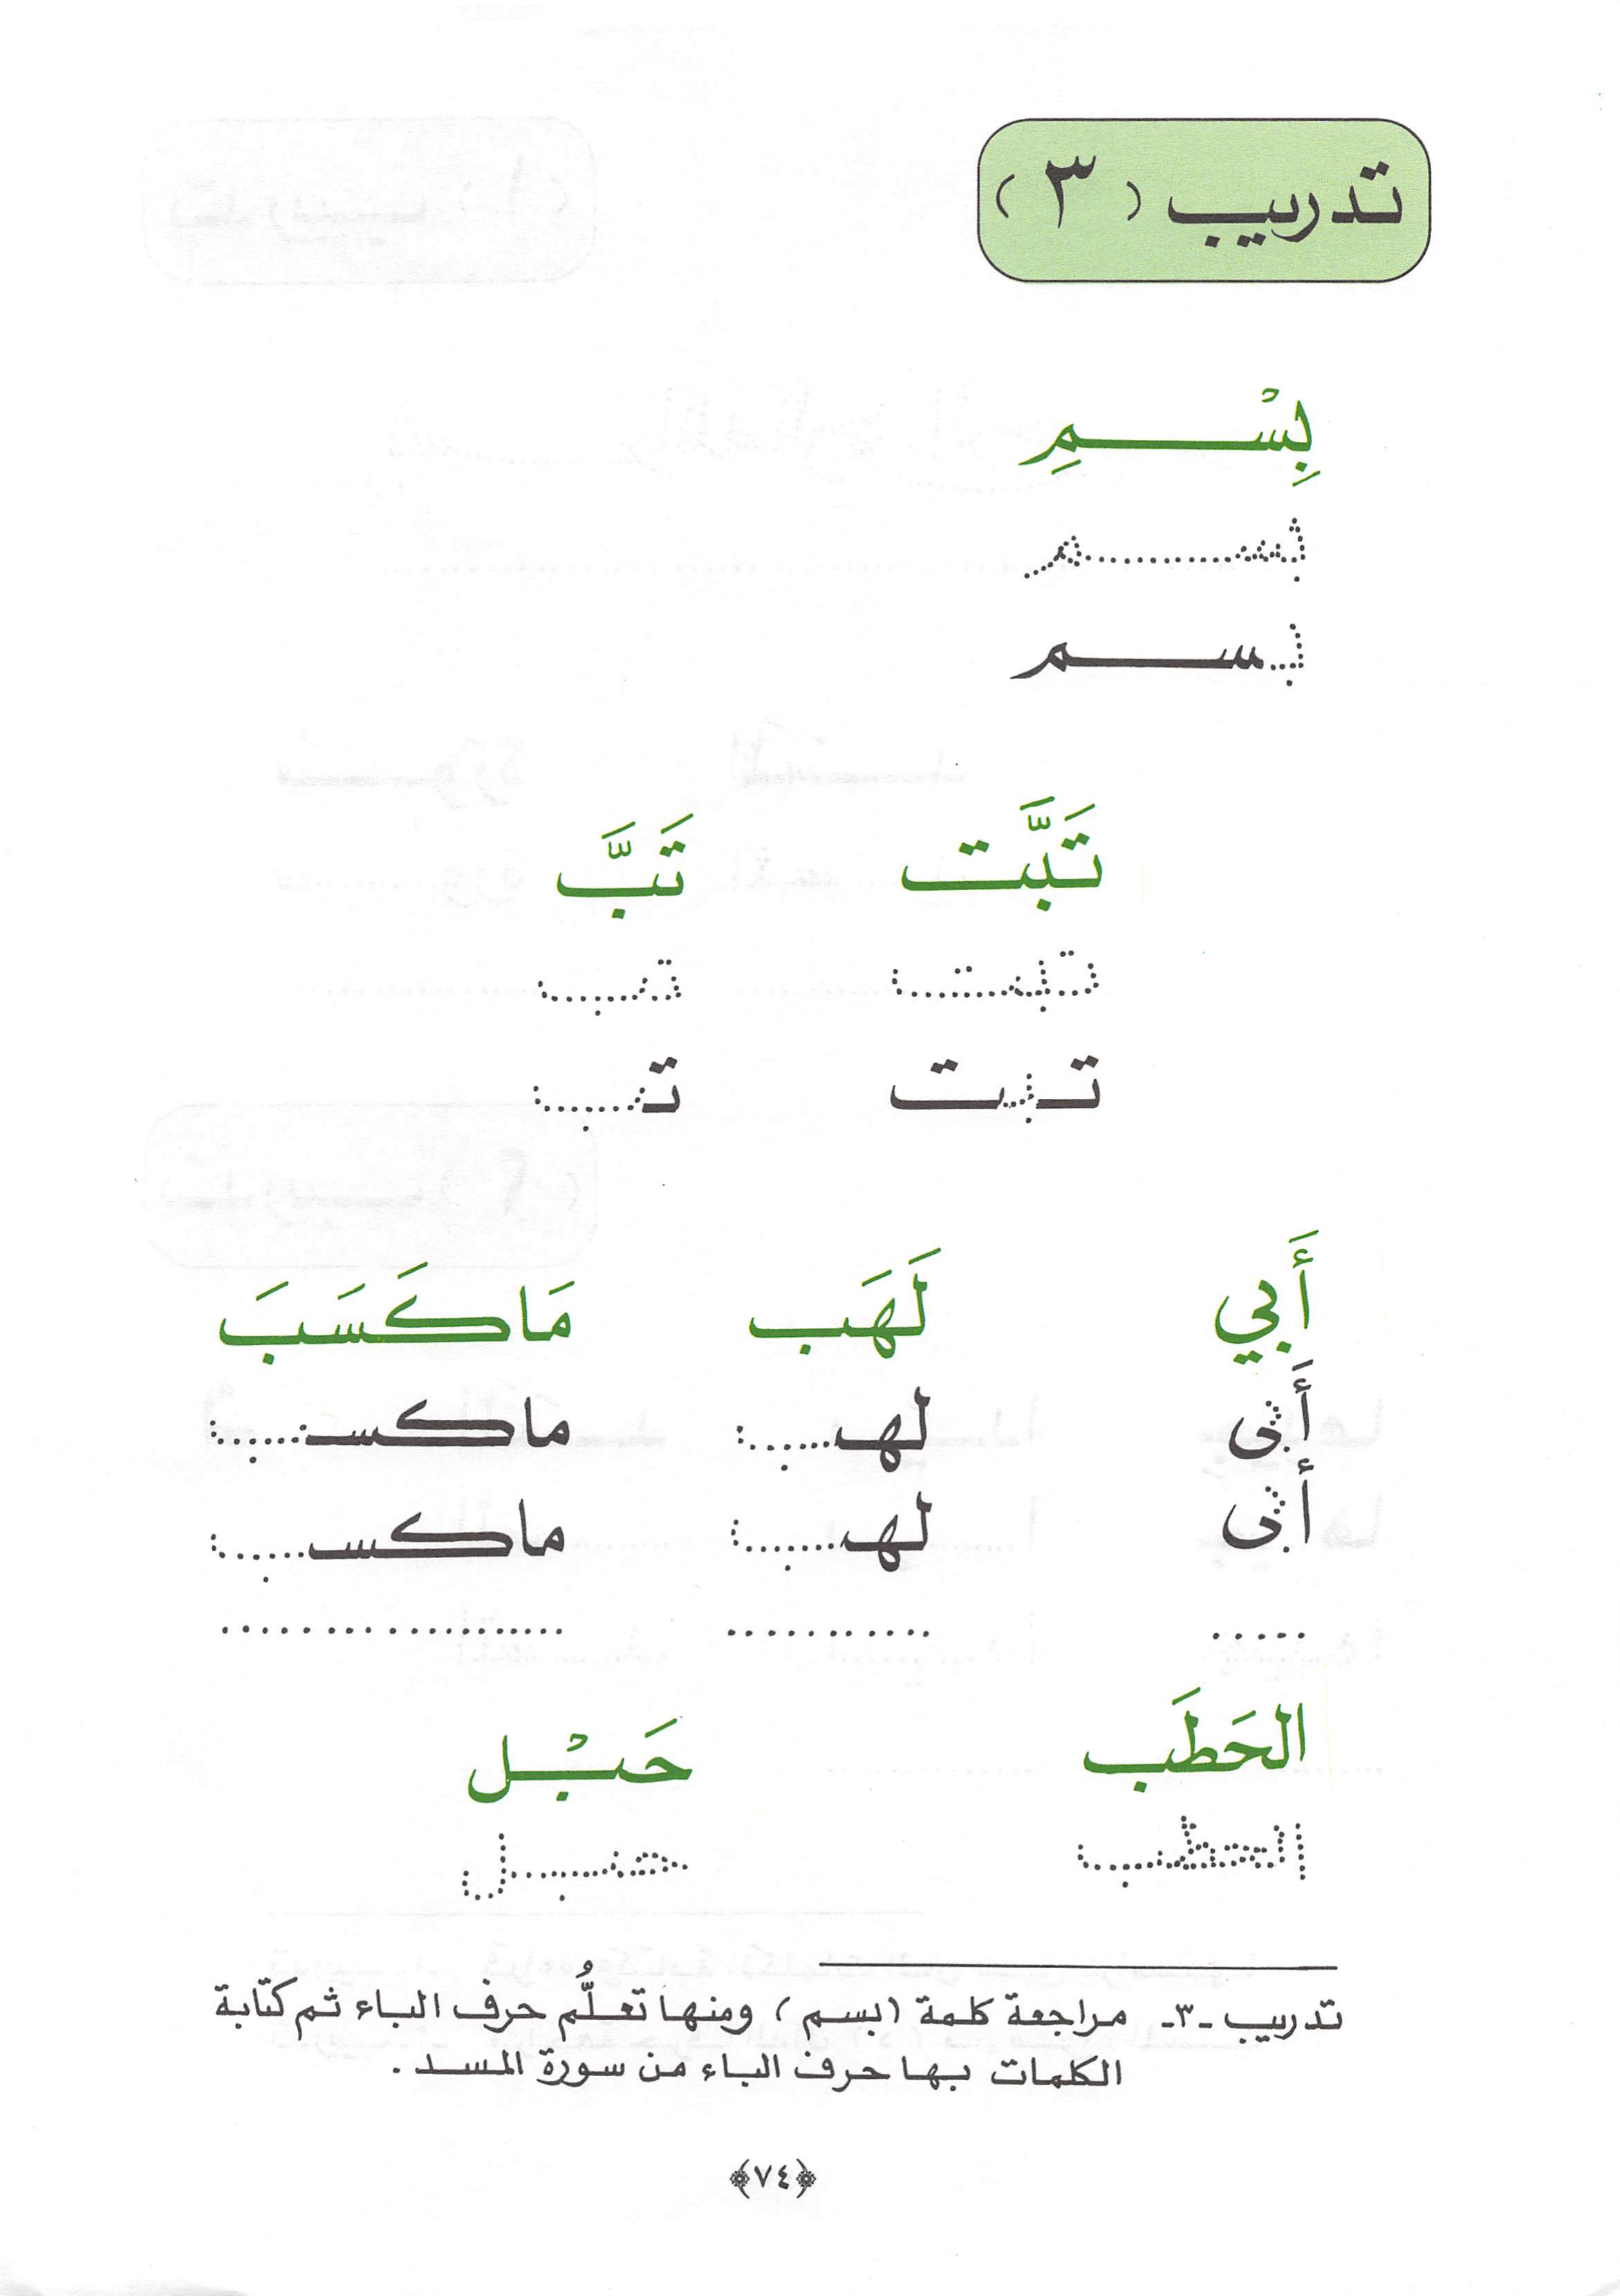 تدريب (٣)
بِسْمِ
بسم
بسم
تَبَّت تَبَّ
تبت تب
تبت تب
أَبِي لَهَب مَاكَسَبَ
أَبى لهب ماكسب
أبى لهب ماكسب
الحَطَب حَبْل
الحطب حبل
تدريب -٣- مراجعة كلمة (بسم) ومنها تعلُّم حرف الباء ثم كتابة
الكلمات بها حرف الباء من سورة المسد.
﴿٧٤﴾